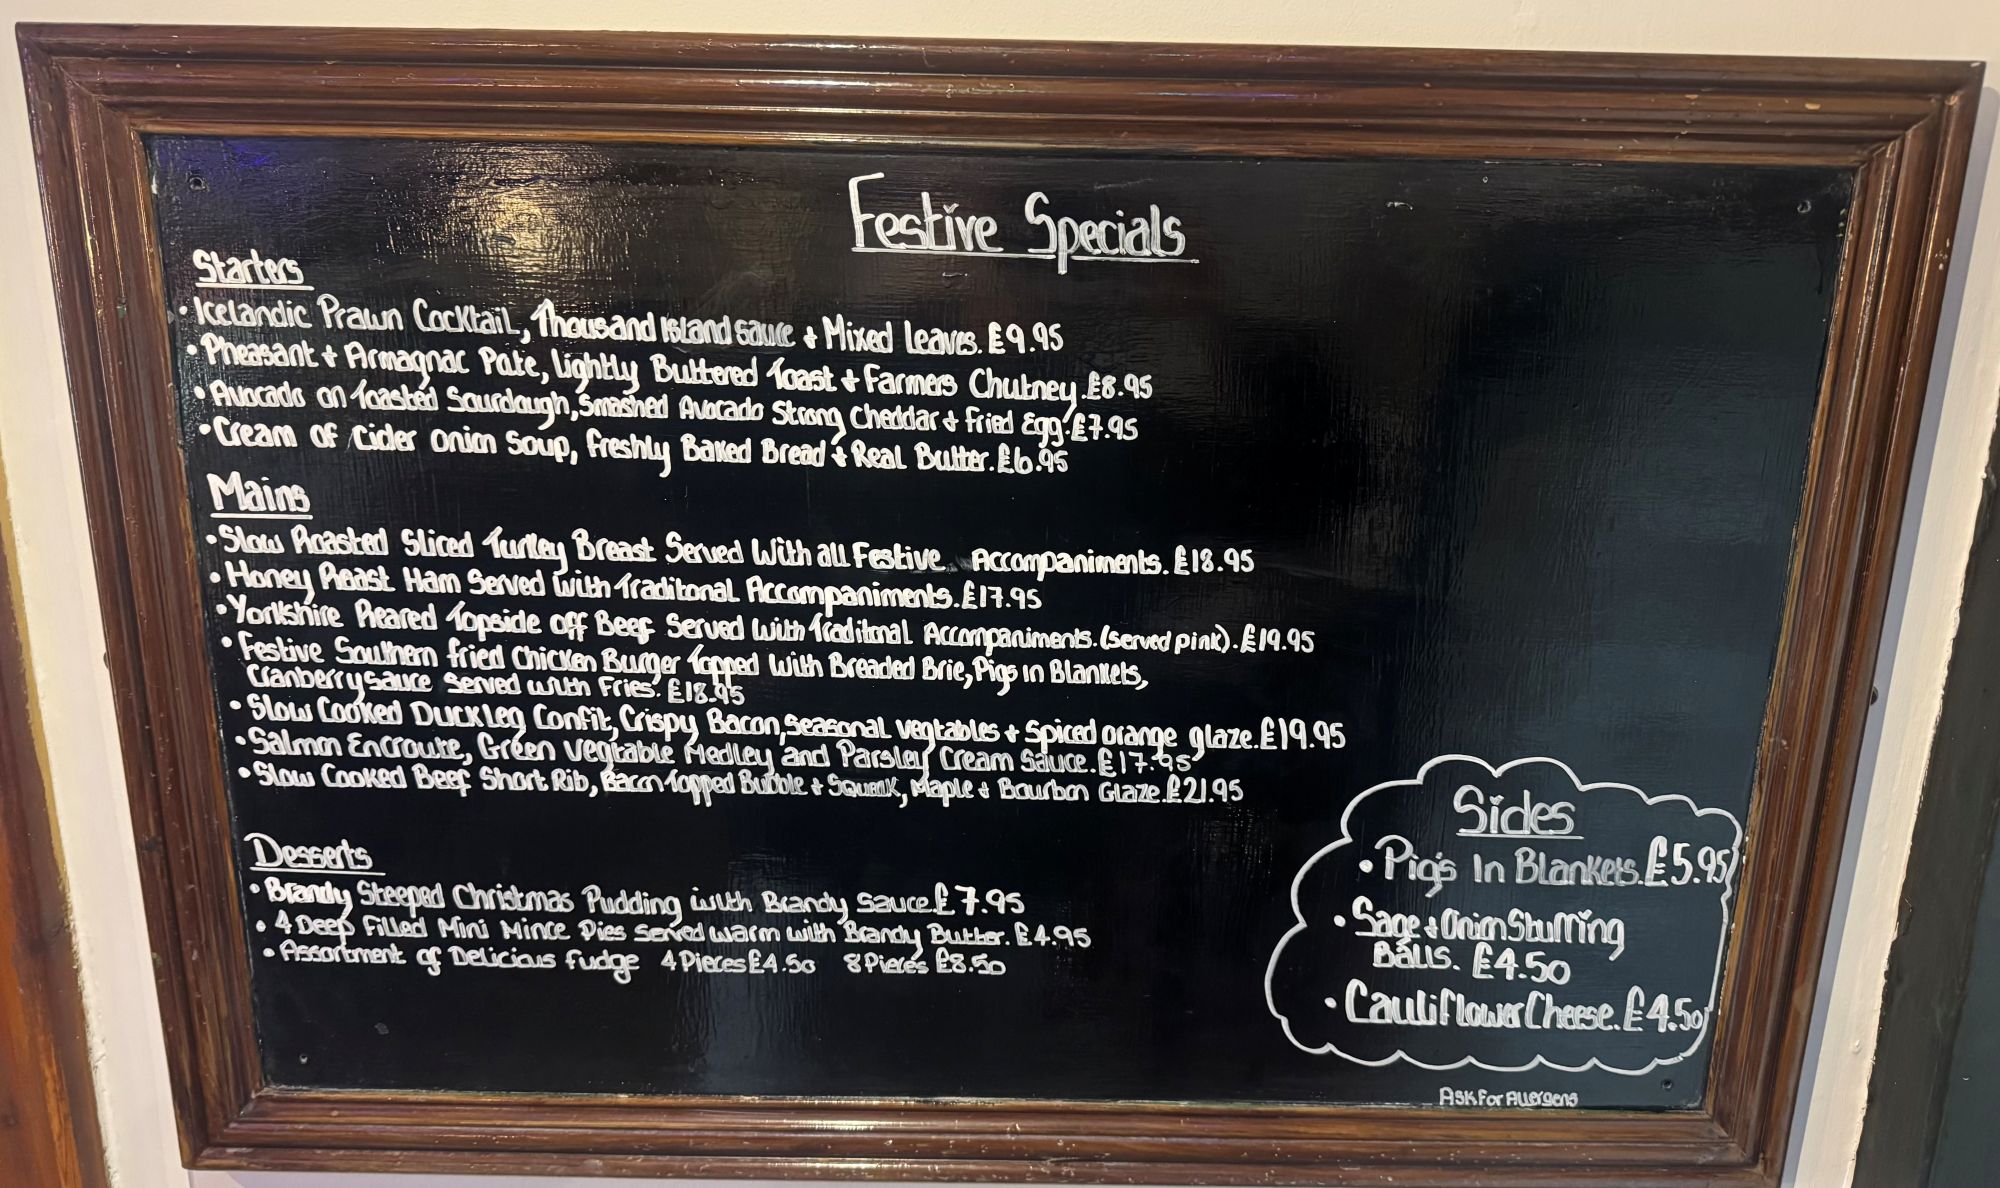 Festive Specials
Starters
• Icelandic Prawn Cocktail, Thousand Island sauce + Mixed Leaves. £9.95
• Pheasant + Armagnac Pate, lightly Buttered Toast + Farmers Chutney. £8.95
• Avocado on Toasted Sourdough, Smashed Avocado Strong Cheddar + Fried Egg. £7.95
• Cream of Cider Onion Soup, Freshly Baked Bread + Real Butter. £6.95
Mains
• Slow Roasted Sliced Turkey Breast Served With all Festive Accompaniments. £18.95
• Honey Roast Ham Served With Traditonal Accompaniments. £17.95
• Yorkshire Reared Topside off Beef Served With Traditonal Accompaniments. (Served pink). £19.95
• Festive Southern fried Chicken Burger Topped With Breaded Brie, Pigs in Blankets,
Cranberry sauce Served with Fries. £18.95
• Slow Cooked Duck Leg Confit, Crispy Bacon, seasonal vegtables + Spiced orange glaze. £19.95
• Salmon Encroute, Green Vegtable Medley and Parsley Cream Sauce. £17.95
• Slow Cooked Beef Short Rib, Bacon Topped Bubble + Squeak, Maple + Bourbon Glaze. £21.95
Desserts
• Brandy Steeped Christmas Pudding with Brandy Sauce. £7.95
• 4 Deep Filled Mini Mince Pies Served Warm with Brandy Butter. £4.95
• Assortment of Delicious fudge 4 Pieces £4.50 8 Pieces £8.50
Sides
• Pig's In Blankets. £5.95
• Sage + Onion Stuffing
Balls. £4.50
• Cauliflower Cheese. £4.50
Ask For Allergens